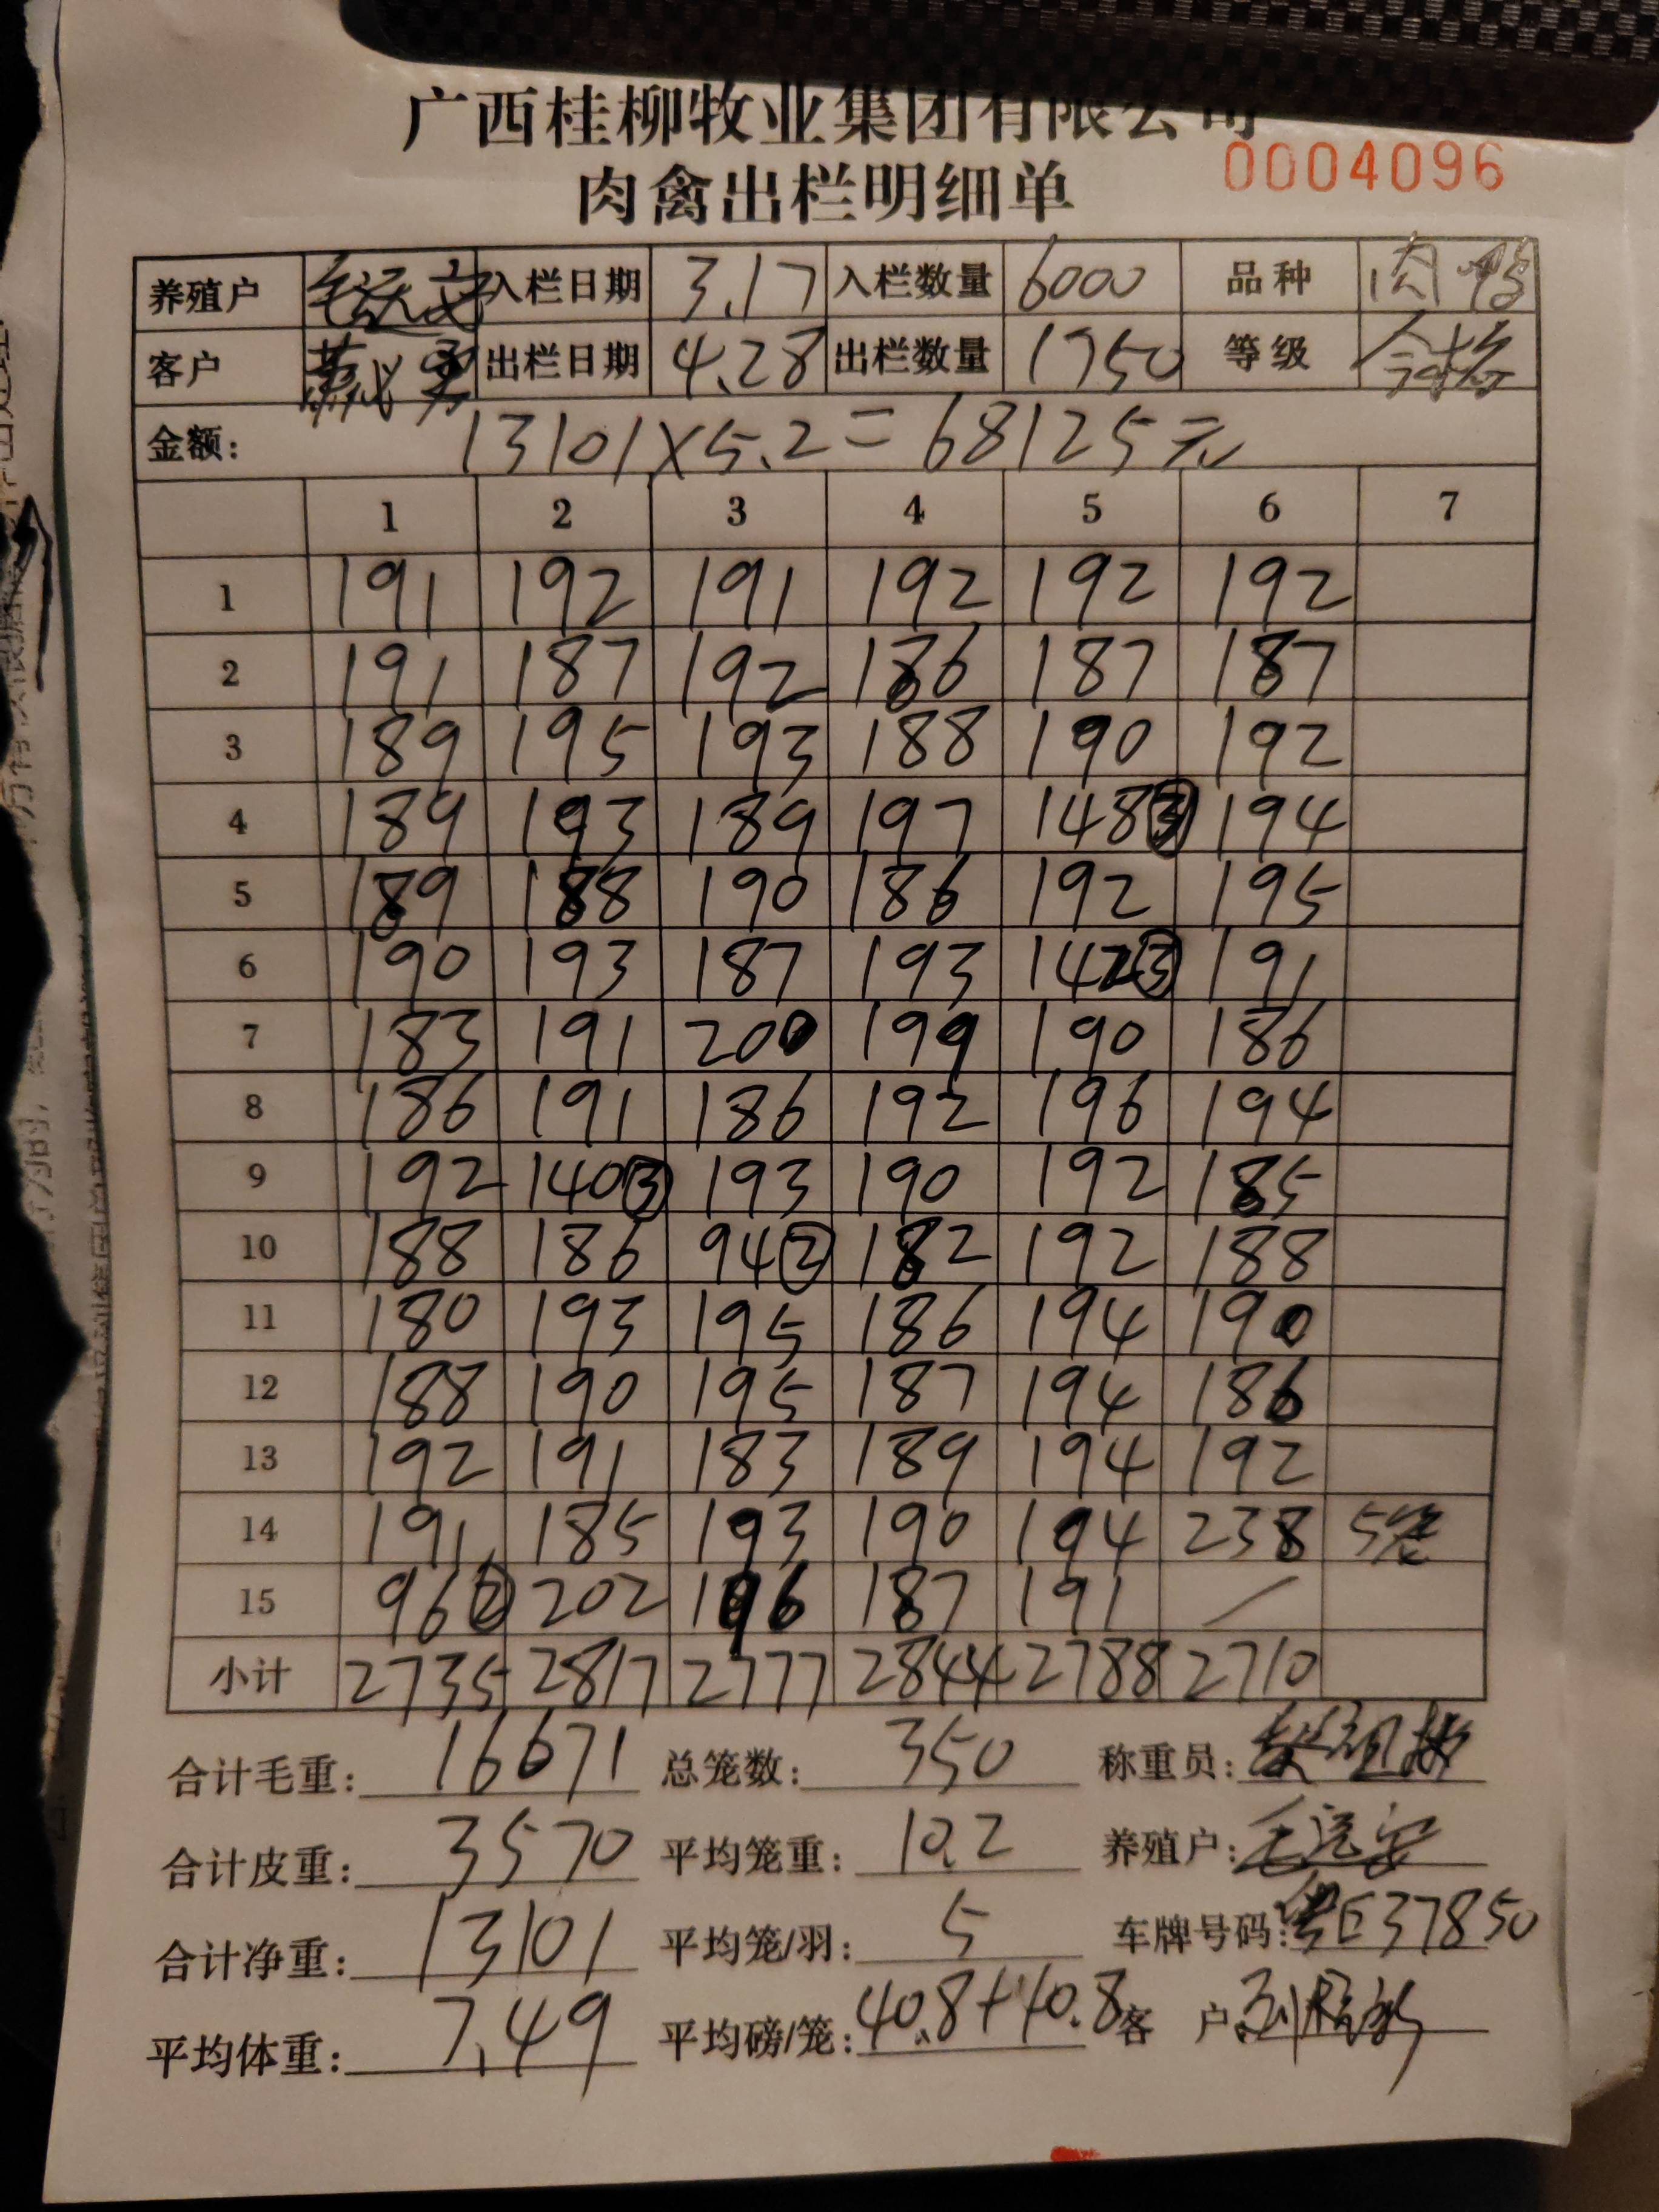 广西桂柳牧业集团有限公司
肉禽出栏明细单 0004096
养殖户 入栏日期 3.17 入栏数量 6000 品种 肉鸭
客户 出栏日期 4.28 出栏数量 1750 等级 合格
金额: 13101×5.2=68125元
1 2 3 4 5 6 7
1 191 192 191 192 192 192
2 191 187 192 186 187 187
3 189 195 193 188 190 192
4 189 193 189 197 148③ 194
5 189 188 190 186 192 195
6 190 193 187 193 142③ 191
7 183 191 200 199 190 186
8 186 191 186 192 196 194
9 192 140③ 193 190 192 185
10 188 186 94② 182 192 188
11 180 193 195 186 194 190
12 188 190 195 187 194 186
13 192 191 183 189 194 192
14 191 185 193 190 194 238 5笼
15 96② 202 196 187 191 /
小计 2735 2817 2777 2844 2788 2710
合计毛重: 16671 总笼数: 350 称重员:
合计皮重: 3570 平均笼重: 10.2 养殖户:
合计净重: 13101 平均笼/羽: 5 车牌号码: 粤E37850
平均体重: 7.49 平均磅/笼: 40.8+40.8 客 户: